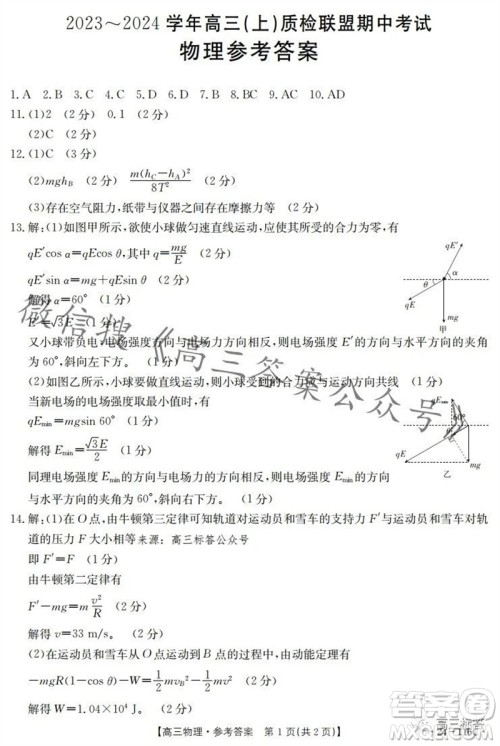 2023～2024 学年高三(上)质检联盟期中考试
物理参考答案
1. A  2. D  3. C  4. C  5. B  6. A  7. B  8. BC  9. AC  10. AD
11. (1)2 (2分)  0.1 (2分)
(2)C (2分)
12. (1)C (2分)
(2)mgh_B (2分)  m(h_C−h_A)²/8T² (2分)
(3)存在空气阻力,纸带与仪器之间存在摩擦力等 (2分)
13. 解:(1)如图甲所示,欲使小球做匀速直线运动,则小球受到的合力为零,有
qE′cos α=qEcos θ,其中 q=mg/E (2分)
qE′sin α=mg+qEsin θ (1分)
解得 α=60° (1分)
E′=√3E (1分)
又小球带负电,电场强度方向与电场力方向相反,则电场强度 E′的方向与水平方向的夹角
为 60°,斜向左下方。 (1分)
(2)如图乙所示,小球要做直线运动,则小球所受的合力方向应与运动方向在一条直线上,
当新电场的电场强度取最小值时,有
qE_min=mgsin 60° (2分)
解得 E_min=√3E/2 (1分)
同理电场强度 E_min的方向与电场力的方向相反,则电场强度 E_min的方向与水平方向的夹
角为 60°,斜向左下方。 (1分)
qE′
α
θ
qE
mg
甲
qE_min
qE
mg
乙
14. 解:(1)在 O 点,由牛顿第三定律可知轨道对运动员和雪车的支持力 F′与轨道受到的
压力 F 大小相等 来源：高三标答公众号
即 F′=F (1分)
由牛顿第二定律有
F′−mg=m v²/R (2分)
解得 v=33 m/s。 (2分)
(2)在运动员和雪车从 O 点运动到 B 点的过程中,由动能定理有
−mgR(1−cos θ)−W=1/2 mv_B²−1/2 mv² (2分)
解得 W=1.04×10⁴ J。 (2分)
【高三物理·参考答案 第 1 页(共 2 页)】
微信搜《高三答案公众号》